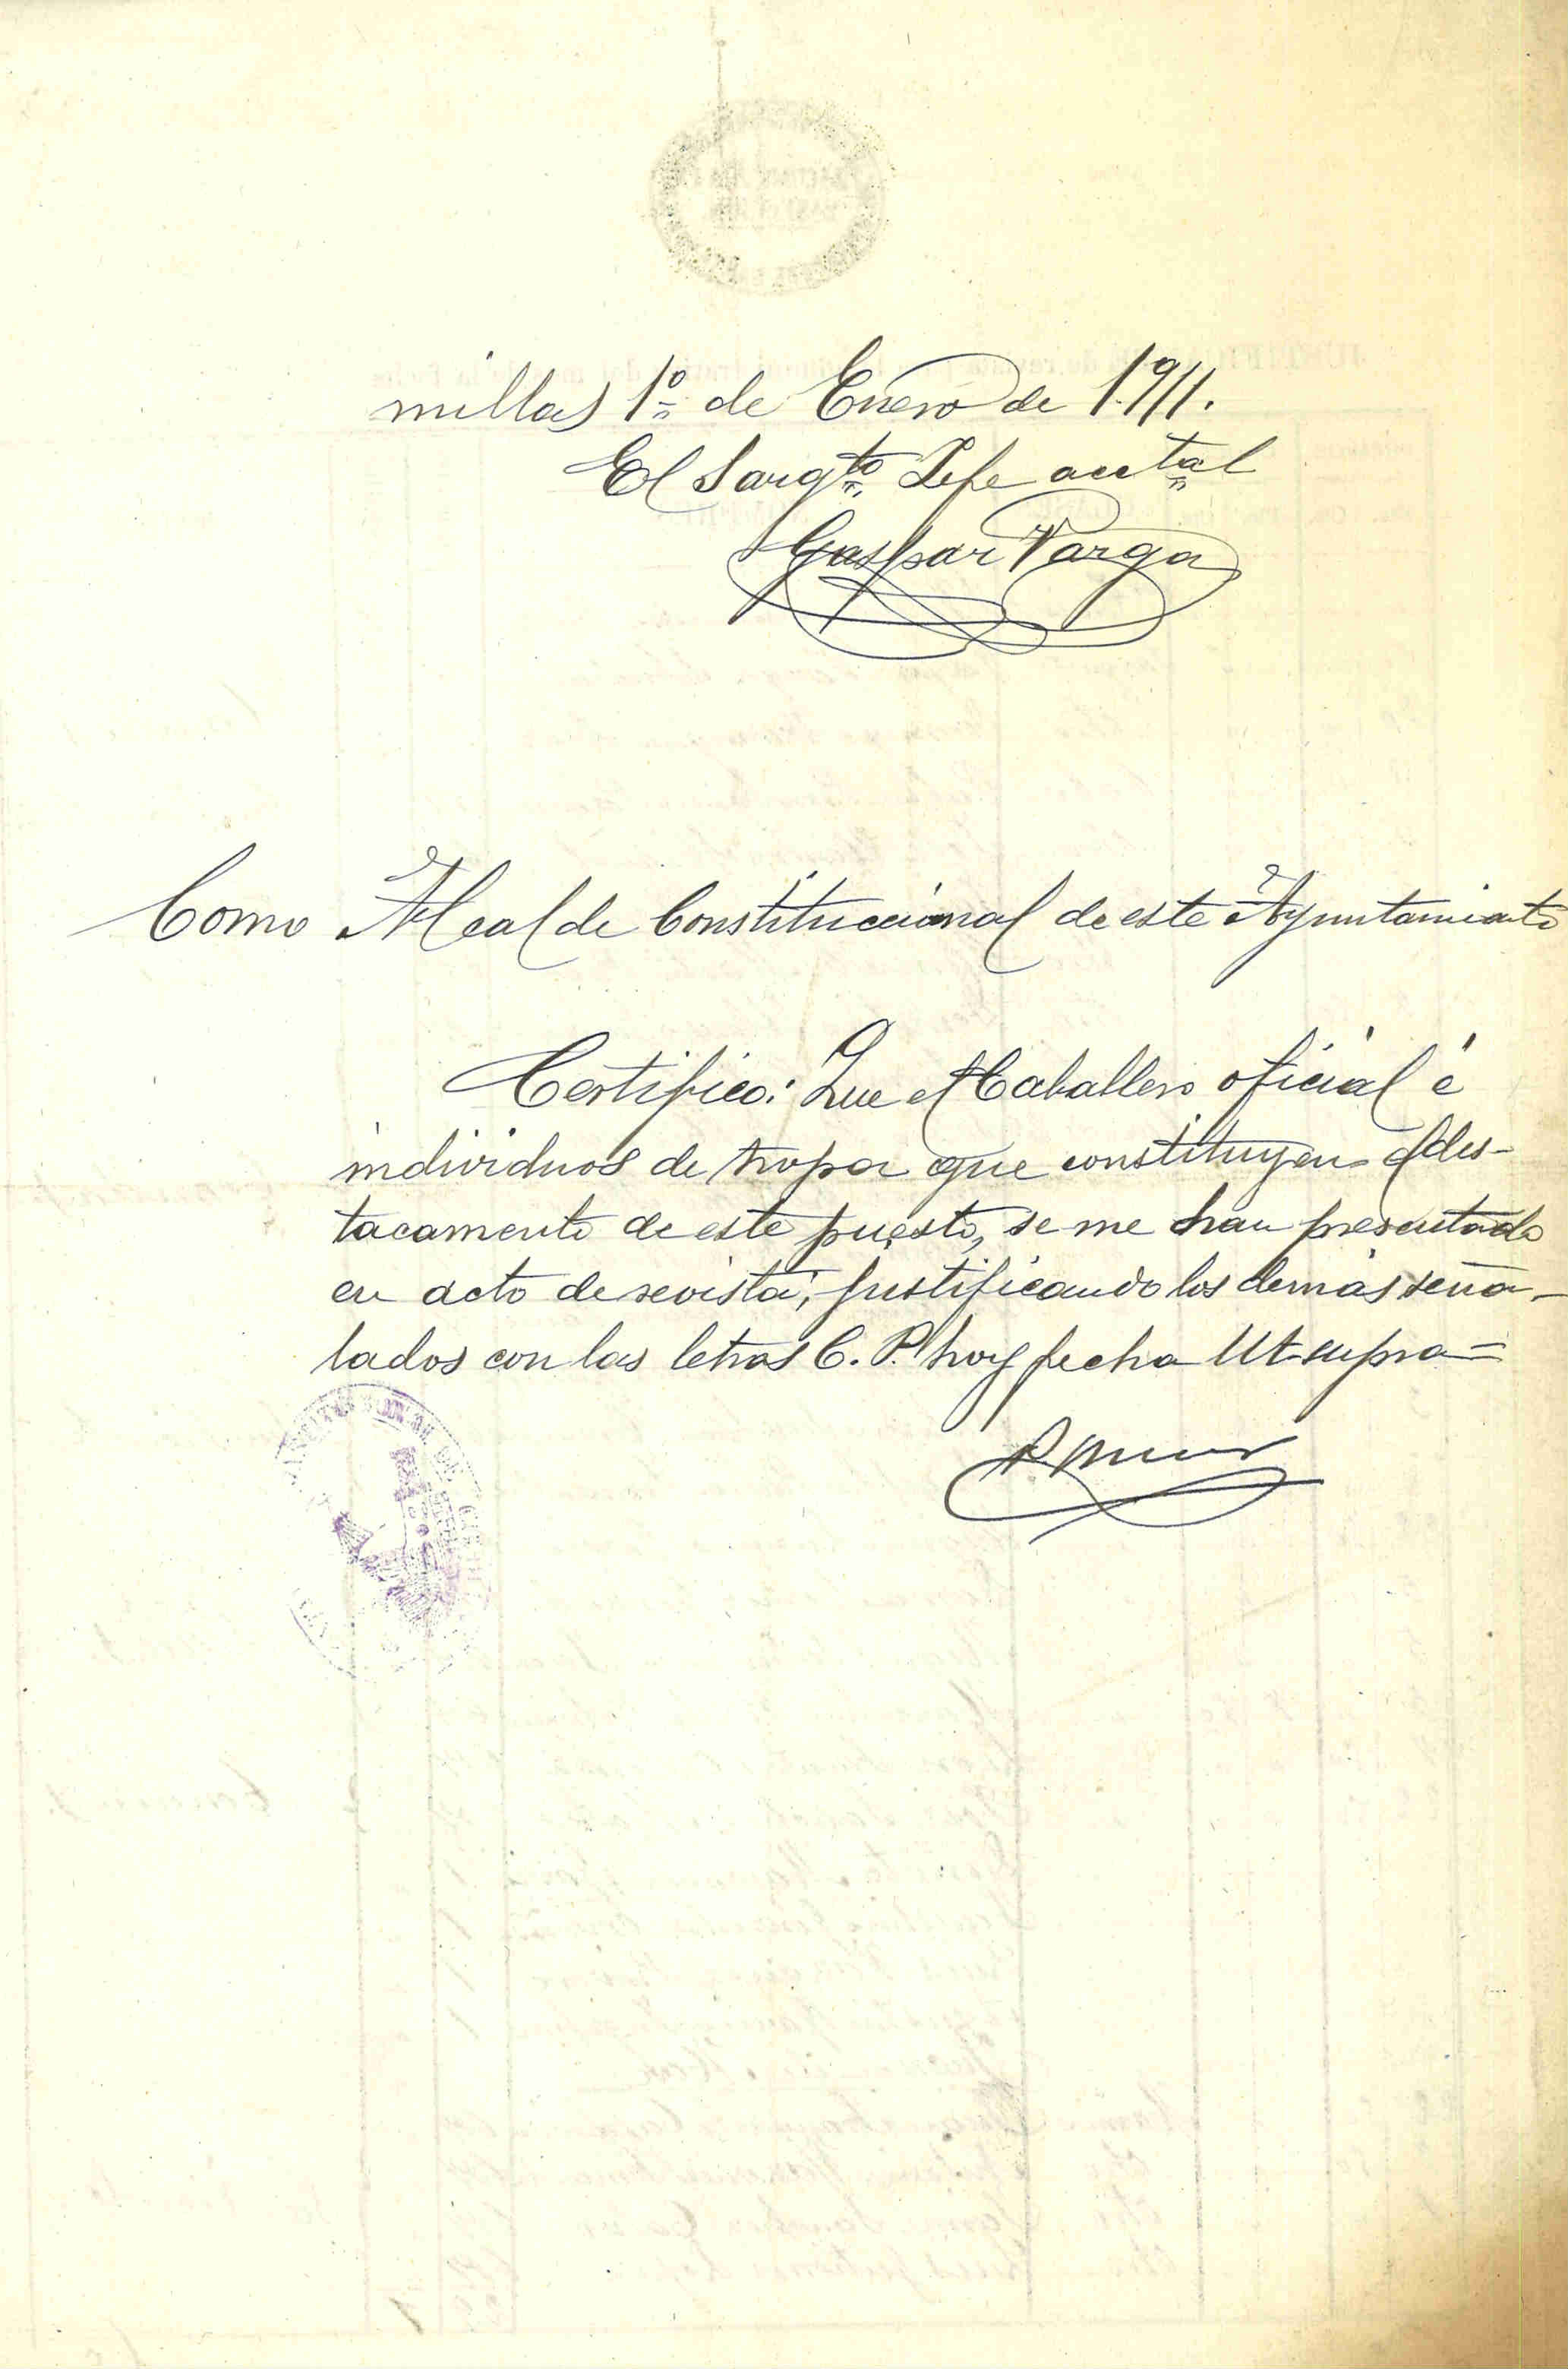 millas 1º de Enero de 1911.
El Sargto Jefe acctal
Gaspar Varga
Como Alcalde Constitucional de este Ayuntamiento
Certifico: Que el Caballero oficial é
individuos de tropa que constituyen el des-
tacamento de este puesto, se me han presentado
en acto de revista, justificando los demás seña-
lados con las letras C. P. hoy fecha Ut supra =